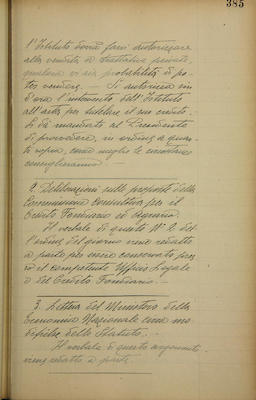 385
l'Istituto dovrà farsi autorizzare
alla vendita a trattativa privata,
qualora vi sia probabilità di po-
ter vendere. — Si autorizza sin
d'ora l'intervento dell'Istituto
all'asta per tutelare il suo credito.
Si dà mandato al Presidente
di provvedere, in ordine a quan-
to sopra, come meglio le circostanze
consiglieranno.
2. Deliberazioni sulle proposte della
Commissione Consultiva per il
Credito Fondiario ed Agrario.
Il verbale di questo N° 2 del-
l'ordine del giorno viene redatto
a parte per essere conservato pres-
so il competente Ufficio Legale
e del Credito Fondiario.
3. Lettera del Ministero della
Economia Nazionale circa mo-
difiche dello Statuto.
Il verbale di questo argomento
viene redatto a parte.